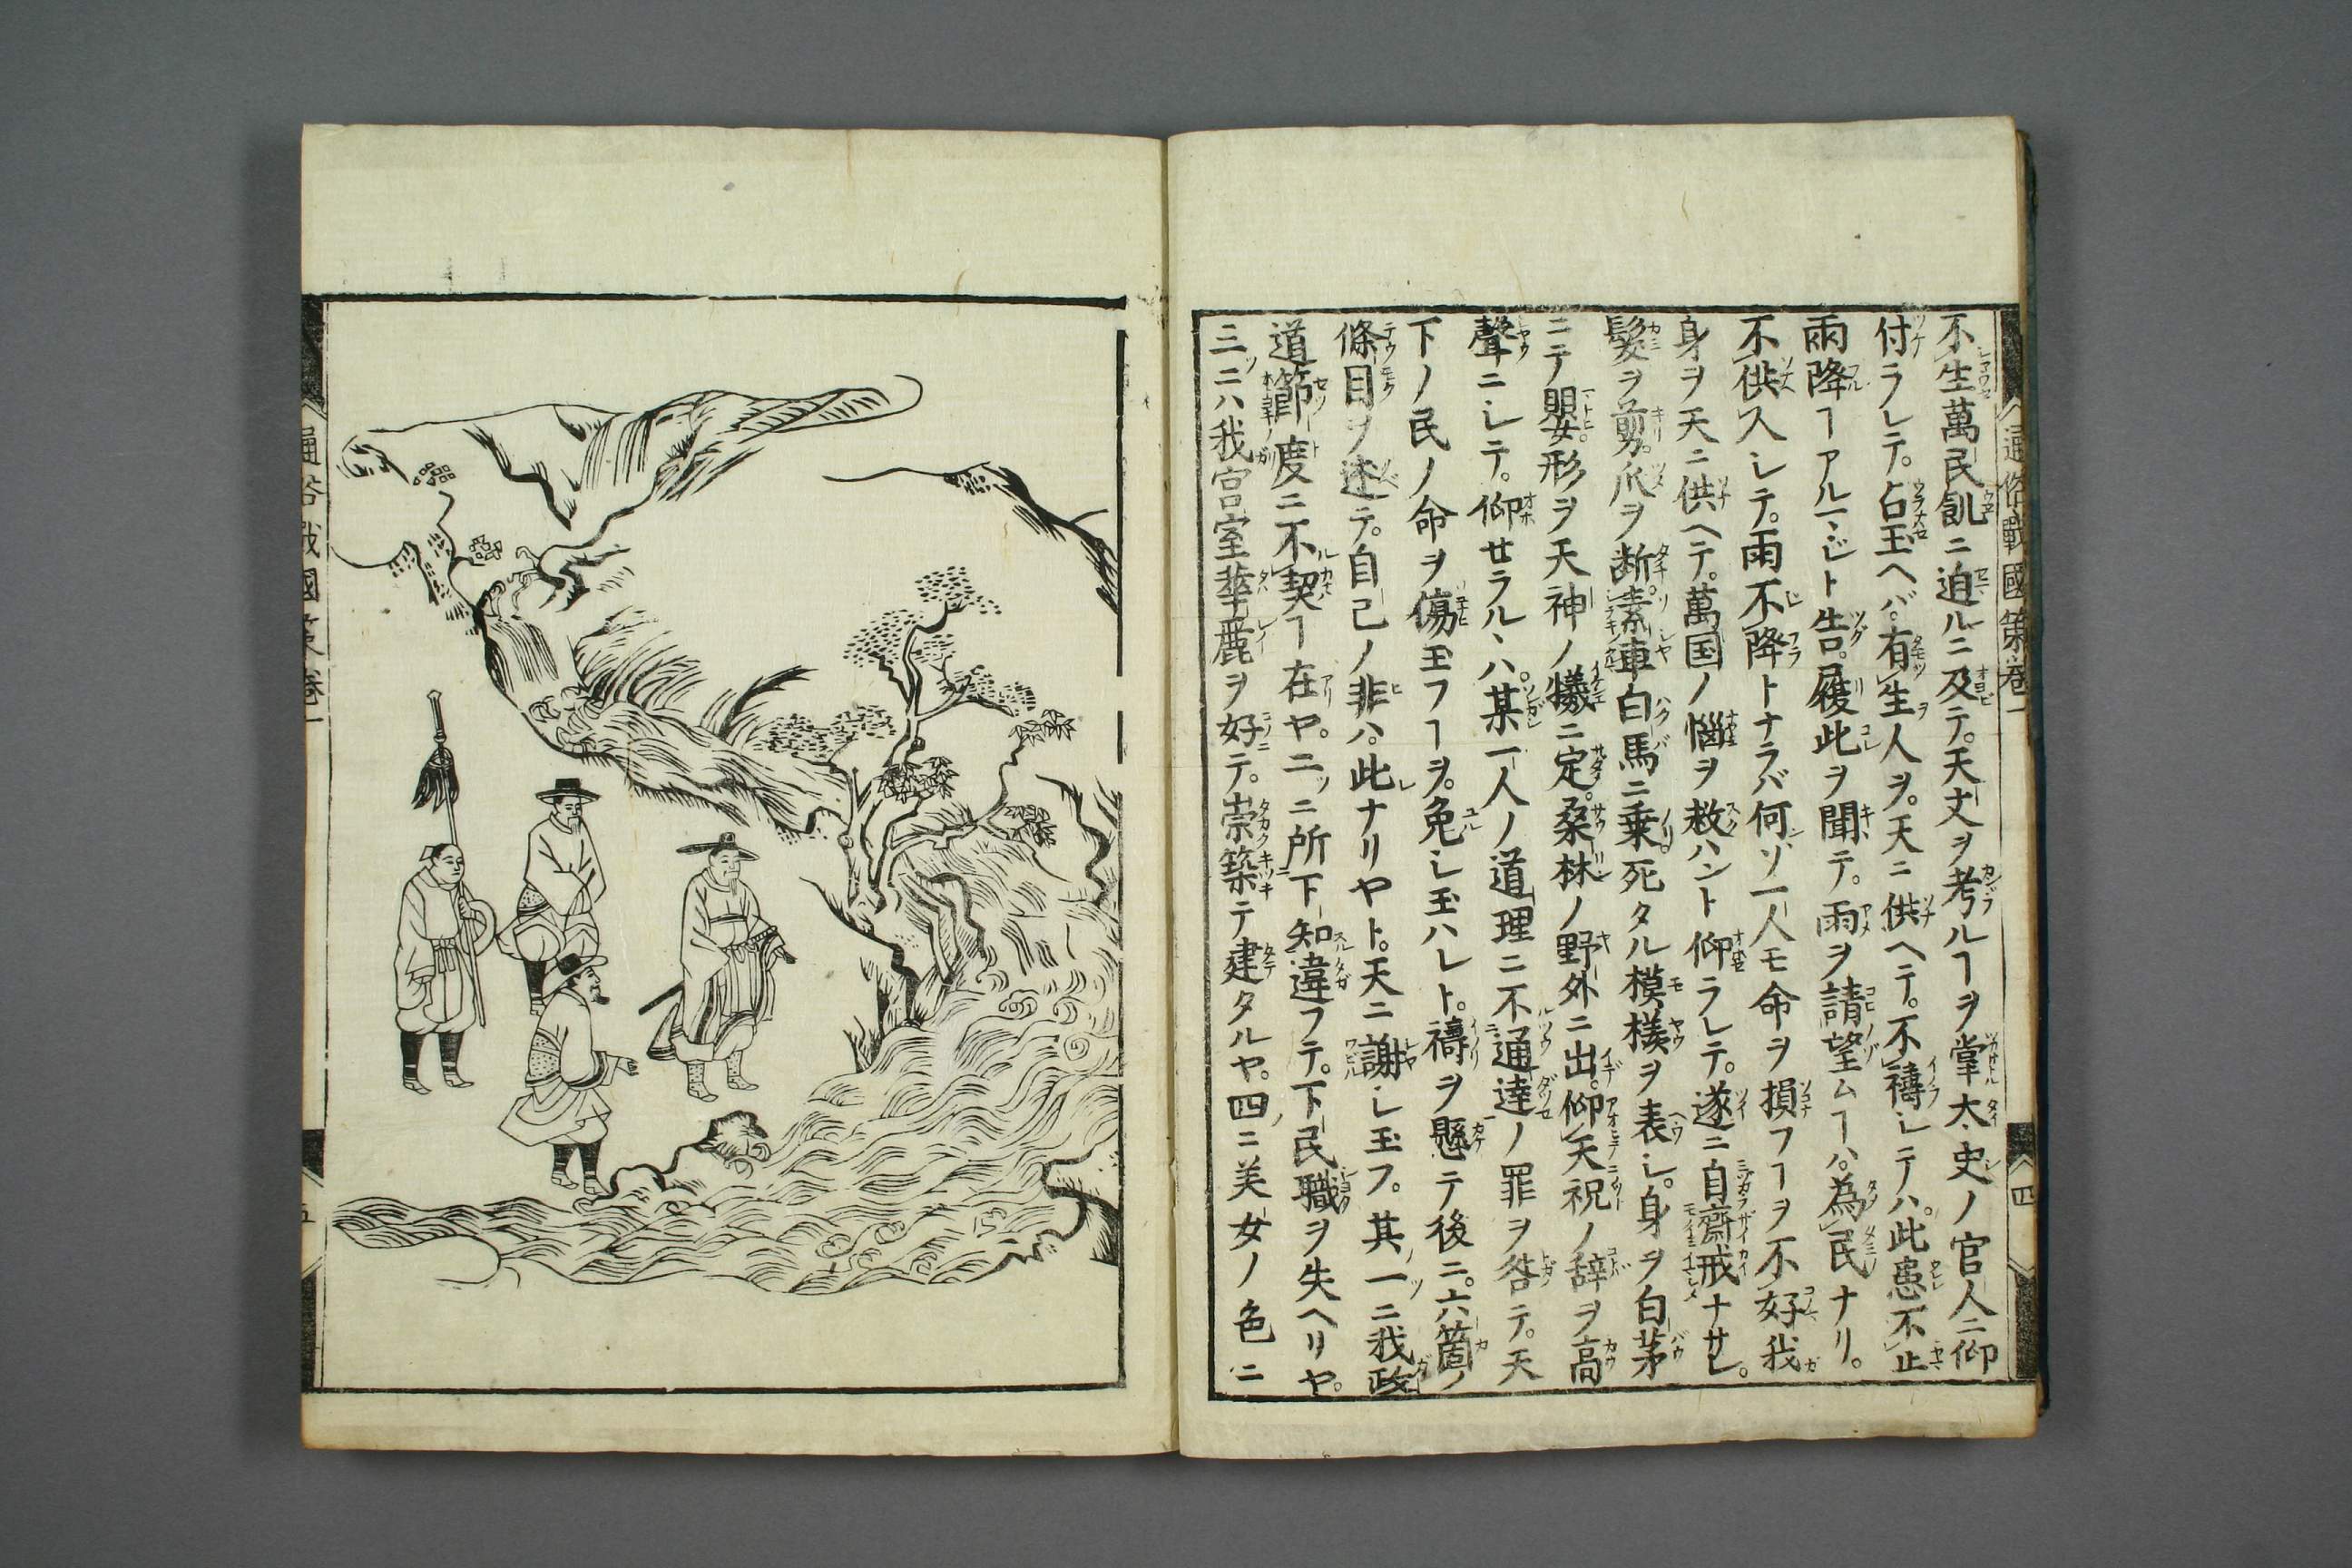 通俗戰國策卷一
四
不生萬民飢ニ迫ルニ及テ。天丈ヲ考ルヿヲ掌太史ノ官人ニ仰
付ラレテ。占玉ヘバ。有生人ヲ。天ニ供ヘテ。不禱シテハ。此患不止
雨降ヿアルマジト告。履此ヲ聞テ。雨ヲ請望ムヿハ。為民ナリ。
不供人シテ。雨不降トナラバ何ゾ一人モ命ヲ損フヿヲ不好我
身ヲ天ニ供ヘテ。萬国ノ惱ヲ救ハント仰ラレテ。遂ニ自齋戒ナサレ。
髮ヲ剪。爪ヲ断。素車白馬ニ乗死タル模様ヲ表シ。身ヲ白茅
ニテ嬰形ヲ天神ノ犧ニ定。桑林ノ野外ニ出。仰天祝ノ辞ヲ高
聲ニシテ。仰セラルヽハ。某一人ノ道理ニ不通達ノ罪ヲ咎テ。天
下ノ民ノ命ヲ傷玉フヿヲ。免シ玉ハレト。禱ヲ懸テ後ニ。六箇ノ
條目ヲ述テ。自己ノ非ハ。此ナリヤト。天ニ謝シ玉フ。其一ニ我政
道節度ニ不契ヿ在ヤ。二ニ所下知違フテ。下民職ヲ失ヘリヤ。
三ニハ我宮室華麗ヲ好テ。崇築テ建タルヤ。四ニ美女ノ色ニ
通俗戰國策卷一
五